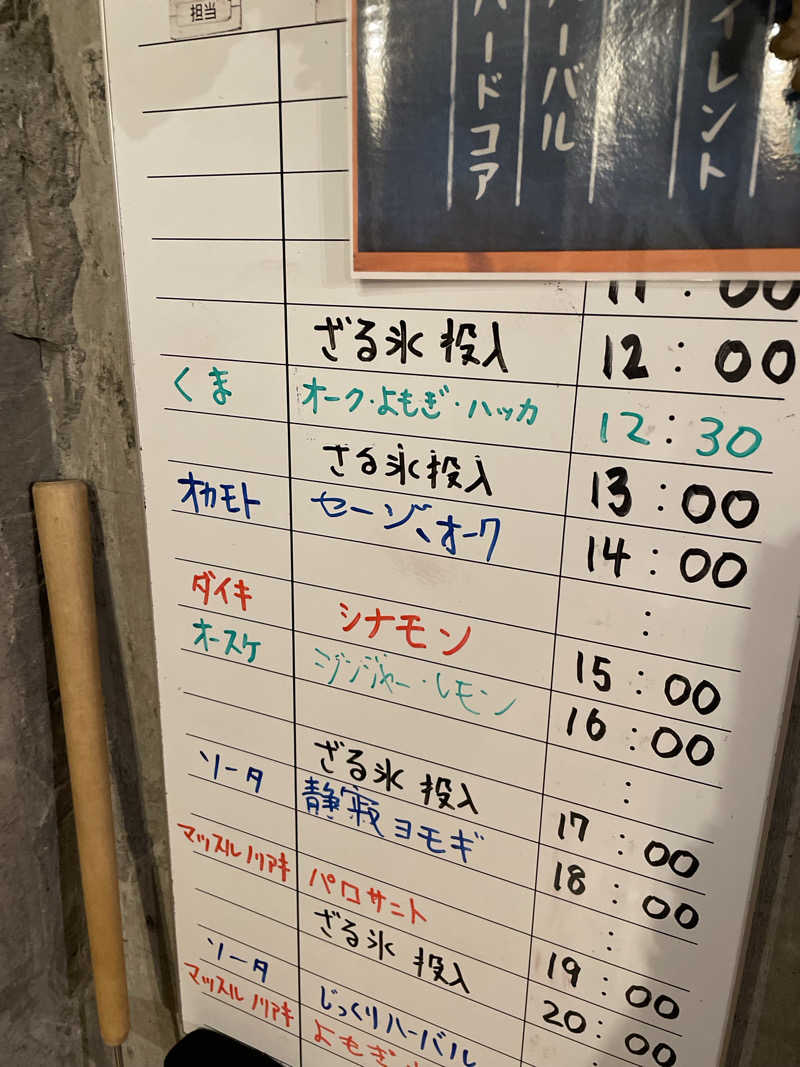 担当
イレント
ーバル
ードコア
11:00
ざる氷 投入 12:00
くま オーク・よもぎ・ハッカ 12:30
さる氷投入 13:00
オカモト セージ、オーク 14:00
:
ダイキ シナモン 15:00
オースケ ジンジャー・レモン 16:00
:
ざる氷 投入 17:00
ソータ 静寂ヨモギ 18:00
:
マッスルノリアキ パロサント 19:00
ざる氷 投入 20:00
:
ソータ じっくりハーバル
マッスルノリアキ よもぎ・